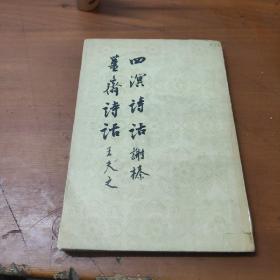 四溟诗话 謝榛
薑斋诗话 王夫之